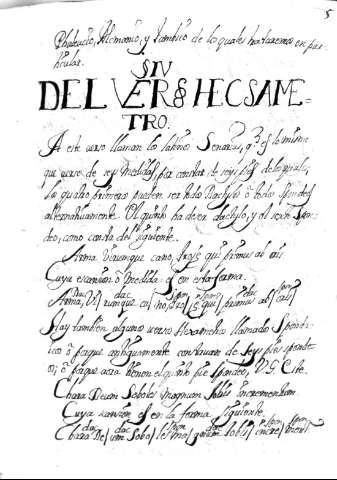 5
Phaleucio, Alemanio, y tambien de los quales trataremos en par
ticular.
SIV
DEL VERSO HECSAME-
TRO.
A este verso llaman los latinos Senario, q.e es lo mismo
que verso de seis medidas, por constar de seis pies de los quales,
los quatro primeros pueden ser todos Dactylos ô todos Spondeos
alternativamente. El quinto ha de ser dactylo, y el sexto Spon
deo, como consta del siguiente.
Arma, Virumque cano, Trojæ qui primus ab oris
Cuya escansion ô medida es en esta forma.
dac dac spon spon dac spon
Arma, Vi/ rumque ca/ no, Tro/ jæ qui/ primus ab/ oris/
Hay tambien algunos versos Hexametros llamados Spondai
cos ô porque antiguamente constavan de seys pies sponde
os; ô porque aora tienen el quinto pie spondeo, V.G. Este.
Chara Deum Soboles magnum Jobis incrementum
Cuya escansion es en la forma siguiente.
dac dac spon dac spon spon
Chara De/ um Sobo/ les mag/ num Jobis/ incre/ mentũ